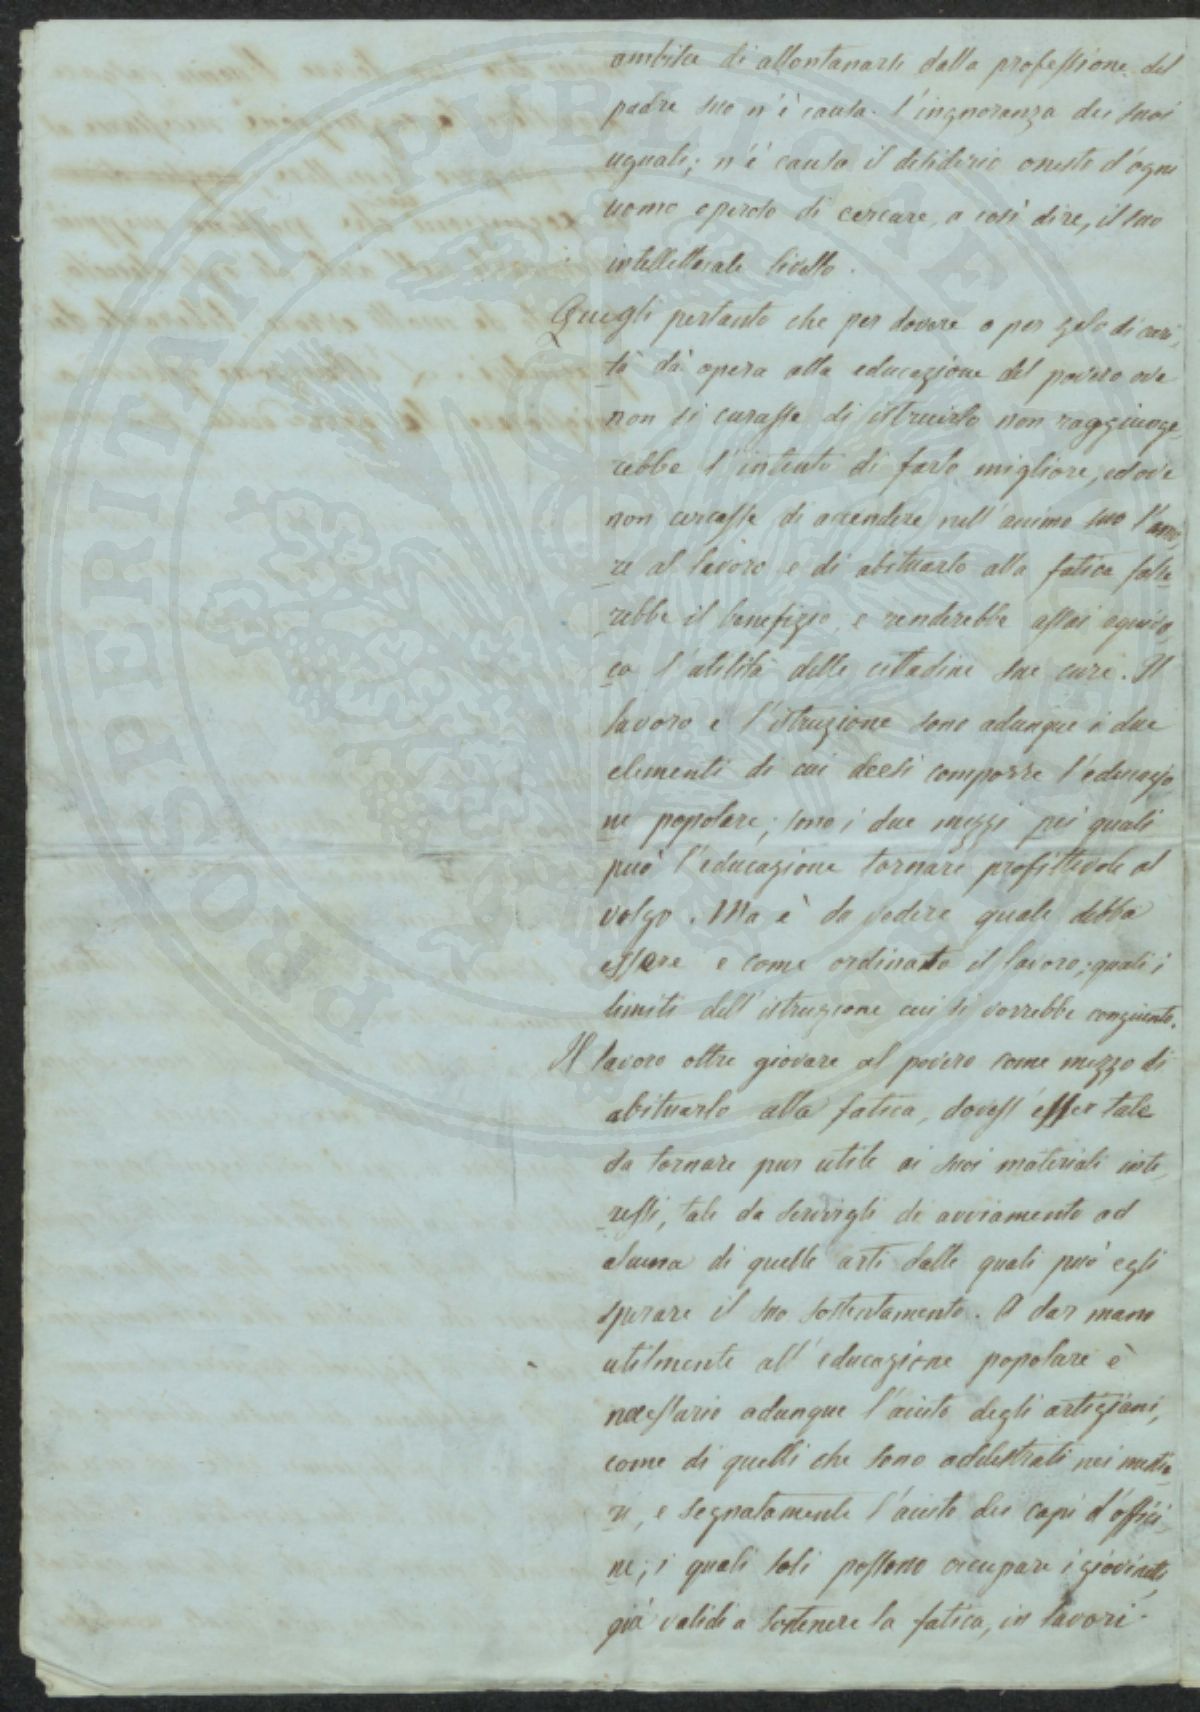 ambisce di allontanarsi dalla professione del
padre suo n'è causa l'ingnoranza dei suoi
uguali; n'è causa il desiderio onesto d'ogni
uomo operoso di cercare, a così dire, il suo
intellettuale livello.
Quegli pertanto che per dovere o per zelo di cari-
tà dà opera alla educazione del povero ove
non si curasse di istruirlo non raggiunge-
rebbe l'intento di farlo migliore, ed ove
non cercasse di accendere nell'animo suo l'amo-
re al lavoro e di abituarlo alla fatica falli-
rebbe il benefizio, e renderebbe assai equivo-
ca l'utilità delle cittadine sue cure. Il
lavoro e l'istruzione sono adunque i due
elementi di cui deesi comporre l'educazio-
ne popolare; sono i due mezzi pei quali
può l'educazione tornare profittevole al
volgo. Ma è da vedere quale debba
essere e come ordinato il lavoro; quali i
limiti dell'istruzione cui si vorrebbe congiunto.
Il lavoro oltre giovare al povero come mezzo di
abituarlo alla fatica, dovess'esser tale
da tornare pur utile ai suoi materiali inte-
ressi, tale da servirgli di avviamento ad
alcuna di quelle arti dalle quali può egli
sperare il suo sostentamento. A dar mano
utilmente all'educazione popolare è
necessario adunque l'aiuto degli artigiani,
come di quelli che sono addestrati nei mestie-
ri, e segnatamente l'aiuto dei capi d'offici-
ne; i quali soli possono occupare i giovinetti,
già validi a sostenere la fatica, in lavori
PROSPERITATI PVBLICAE